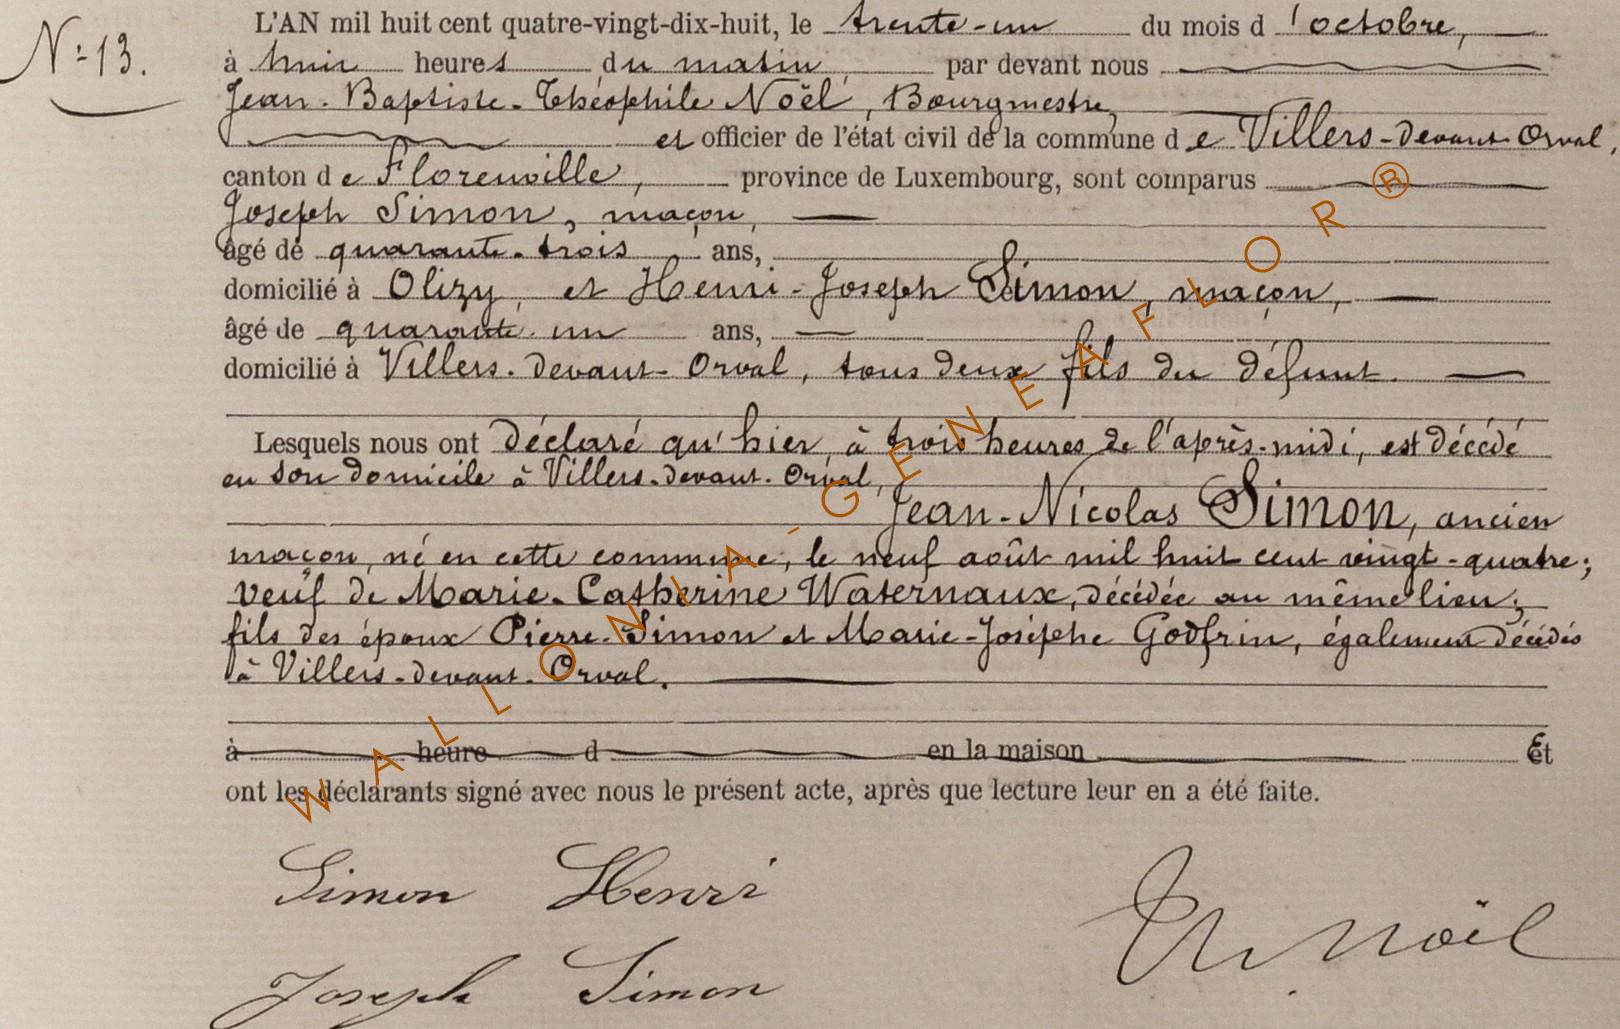 N° 13.
L'AN mil huit cent quatre-vingt-dix-huit, le trente-un du mois d'octobre,
à huit heures du matin, par devant nous
Jean-Baptiste-Théophile Noël, Bourgmestre,
et officier de l'état civil de la commune de Villers-devant-Orval,
canton de Florenville, province de Luxembourg, sont comparus
Joseph Simon, maçon,
âgé de quarante-trois ans,
domicilié à Olizy, et Henri-Joseph Simon, maçon,
âgé de quarante-un ans,
domicilié à Villers-devant-Orval, tous deux fils du défunt.
Lesquels nous ont déclaré qu'hier, à trois heures de l'après-midi, est décédé
en son domicile à Villers-devant-Orval,
Jean-Nicolas Simon, ancien
maçon, né en cette commune, le neuf août mil huit cent vingt-quatre;
veuf de Marie-Catherine Waternaux, décédée au même lieu;
fils des époux Pierre Simon et Marie-Josèphe Godfrin, également décédés
à Villers-devant-Orval.
à heure d en la maison Et
ont les déclarants signé avec nous le présent acte, après que lecture leur en a été faite.
Simon Henri
Th Noël
Joseph Simon
WALLONIA-GENEAFLOR®